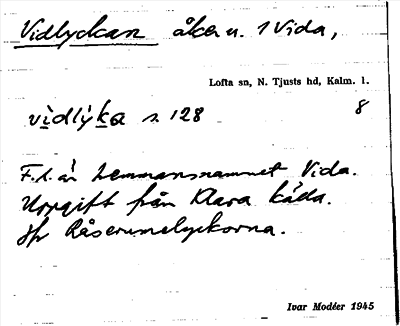 Vidlyckan åker u. 1 Vida,
Lofta sn, N. Tjusts hd, Kalm. l.
vìdlýka s. 128 8
F. l. är hemmansnamnet Vida.
Uppgift från Klara Kåda.
Jfr Råserumelyckorna.
Ivar Modéer 1945